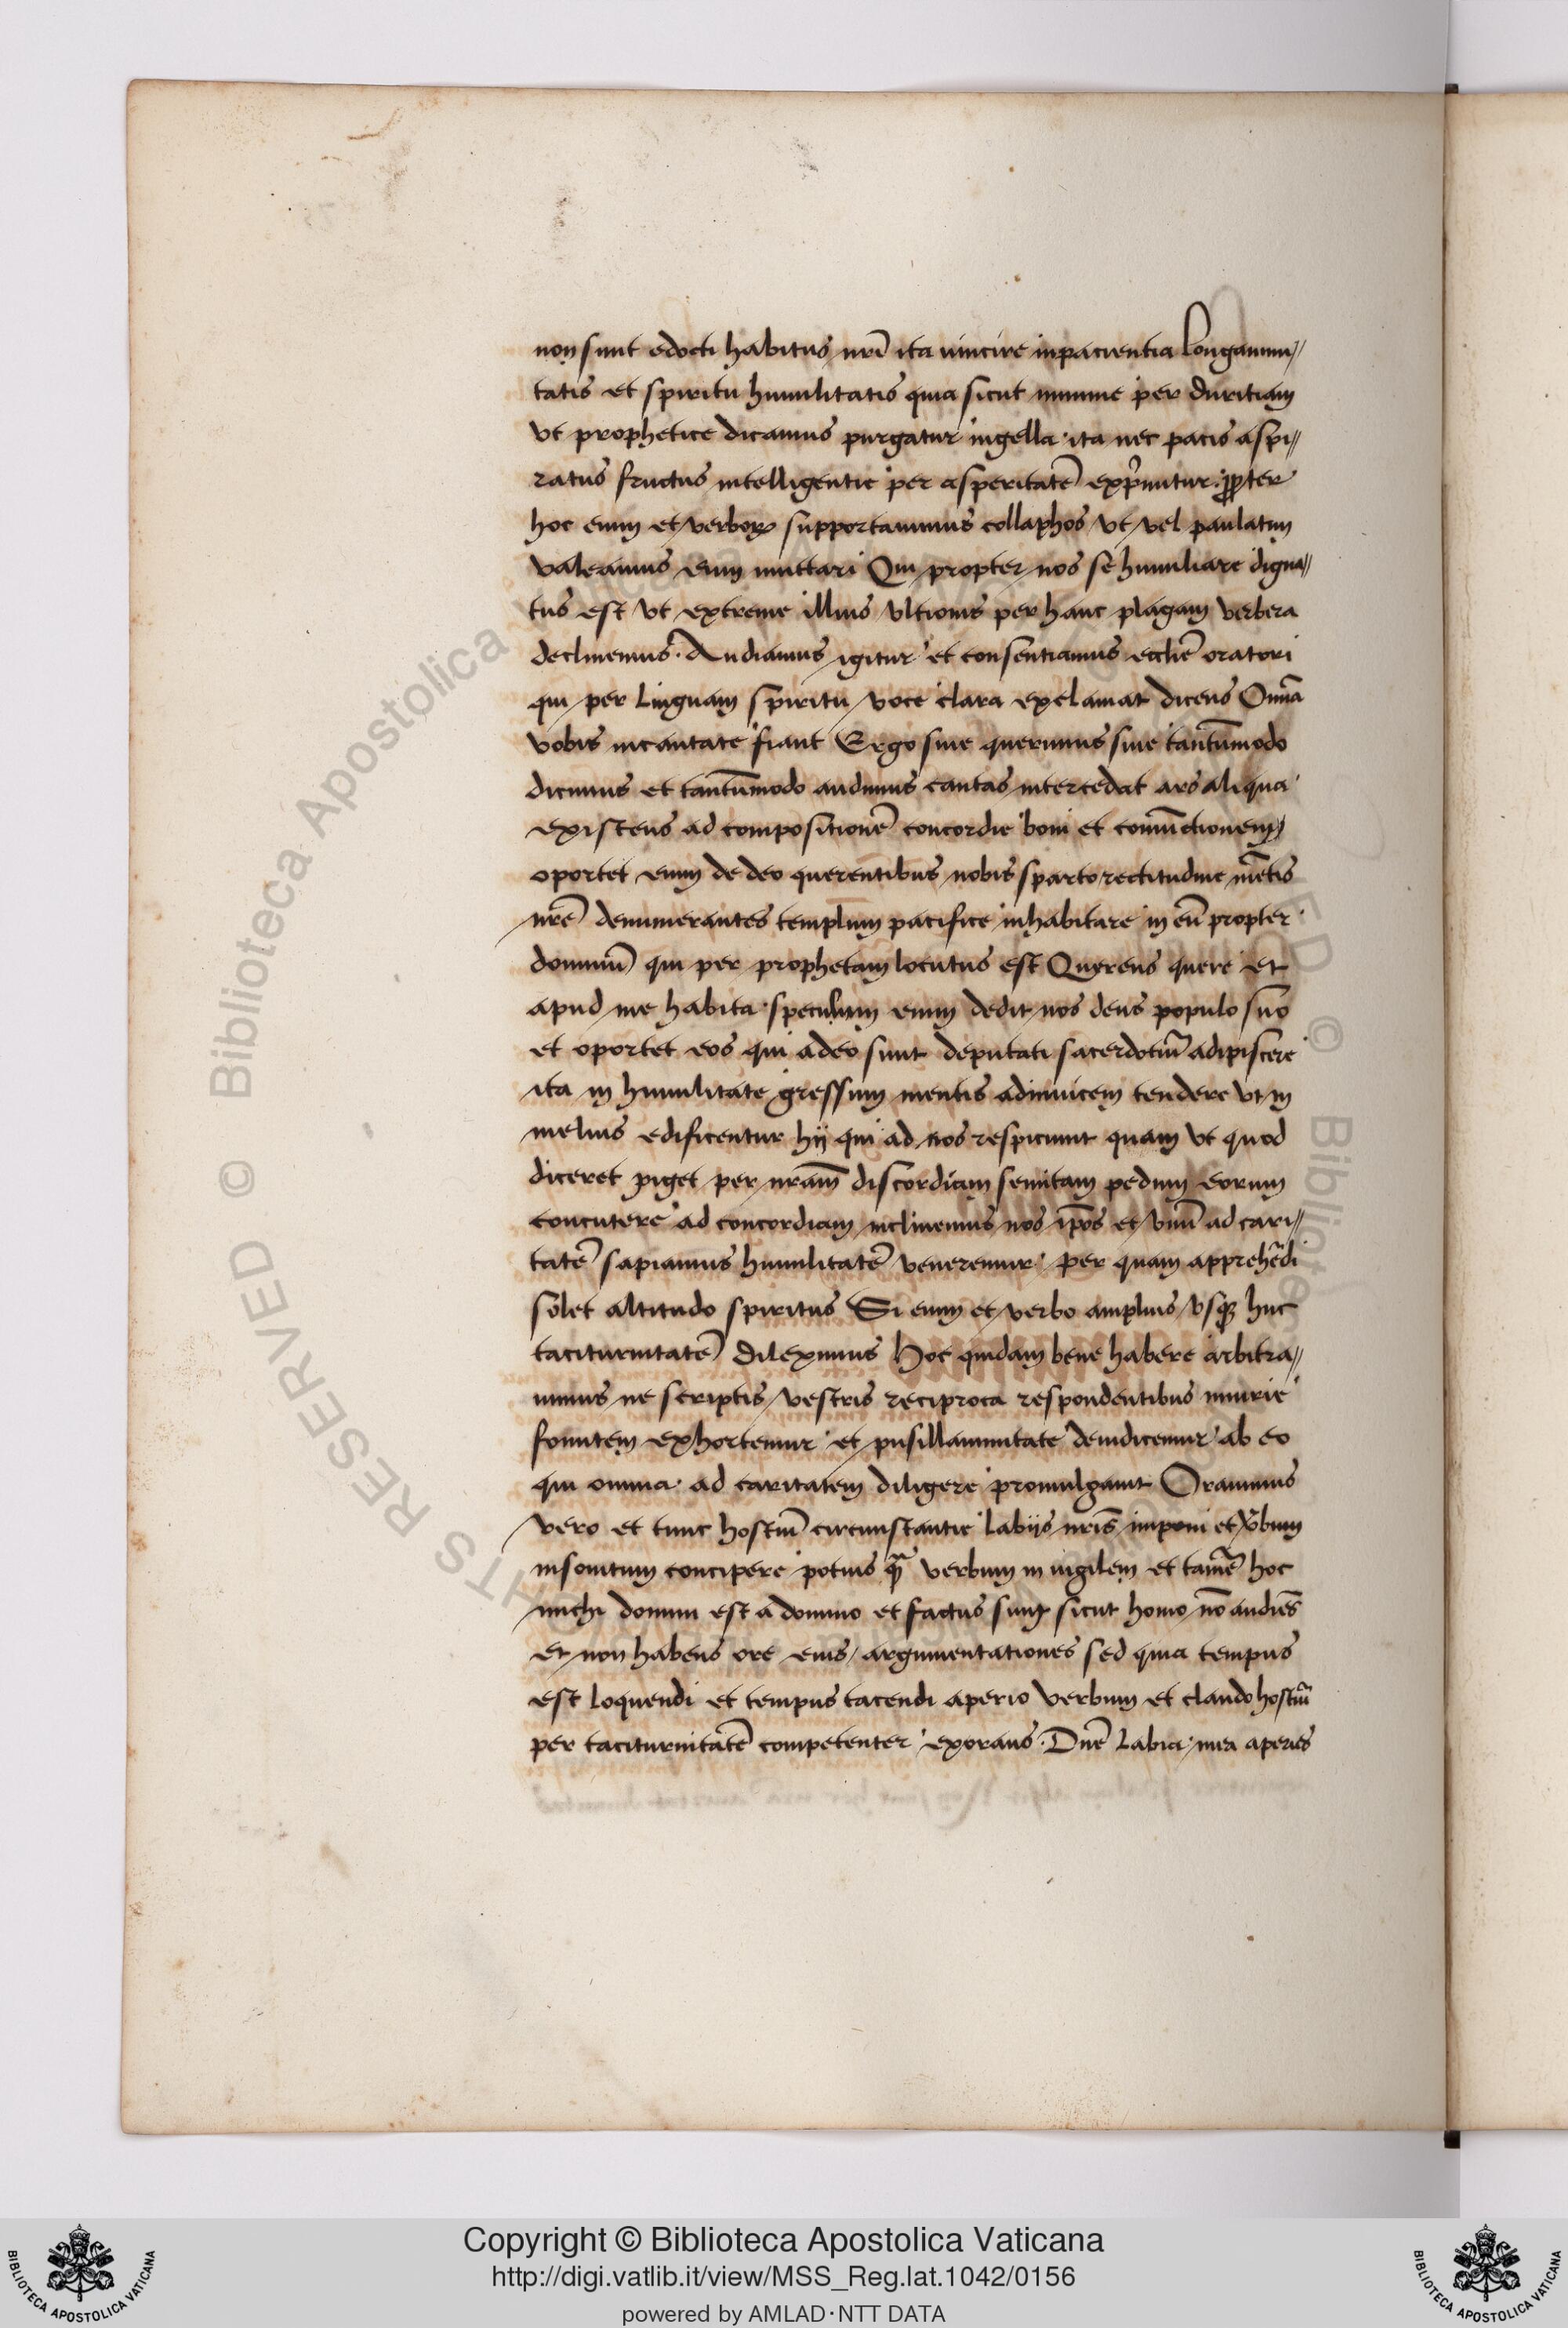 non sunt edocti habitus nrī ita uincire inpacientia longanimi//
tatis et spiritu humilitatis quia sicut minime per duritiam
vt prophetice dicamus purgatur ingella ita nec pacis aspi//
ratus fructus intelligentie per asperitatē exp̄mitur ꝓpter
hoc enim et verboꝝ supportauimus collaphos vt vel paulatim
valeamus eum imittari Qui propter nos se humiliare digna//
tus est vt extreme illius vltionis per hanc plagam verbera
declinemus. Audiamus igitur et consentiamus ecclīe oratori
qui per linguam spiritu voce clara exclamat dicens Omīa
vobis incaritate fiant Ergo siue querimus siue tantūmodo
dicimus et tantūmodo audimus caritas intercedat ars aliqua
existens ad compositionē concordie boni et coniūctionem
oportet enim de deo querentibus nobis sparto rectitudine mētis
nrē denumerantes templum pacifice inhabitare in eū propter
dominū qui per prophetam locutus est Querens quere et
apud me habita speculum enim dedit nos deus populo suo
et oportet eos qui adeo sunt deputati sacerdotiū adipiscere
ita in humilitate gressum mentis adinuicem tendere vt in
melius edificentur hij qui ad nos respiciunt quam vt quod
diceret piget per nrām discordiam semitam pedum eorum
concutere ad concordiam inclinemus nos ip̄os et vnū ad cari//
tatē sapiamus humilitatē veneremur per quam apprehēdi
solet altitudo spiritus Si enim et verbo amplius vsqꝫ huc
taciturnitatē dileximus Hoc quidam bene habere arbitra//
mimus ne scriptis vestris reciproca respondentibus iniurie
fomitem exhortemur et pusillanimitate deiudicemur ab eo
qui omnia ad caritatem diligere promulgauit Orauimus
vero et tunc hostiū circunstantie labijs nrīs imponi et v̄bum
insonitum concipere potius q̄ verbum in uigilem et tamē hoc
michi donum est a domino et factus sum sicut homo nō audiēs
et non habens ore eius argumentationes sed quia tempus
est loquendi et tempus tacendi aperio verbum et claudo hostiū
per taciturnitatē competenter exorans. Dn̄e labia mea aperies
Copyright © Biblioteca Apostolica Vaticana
http://digi.vatlib.it/view/MSS_Reg.lat.1042/0156
powered by AMLAD·NTT DATA
BIBLIOTECA APOSTOLICA VATICANA
BIBLIOTECA APOSTOLICA VATICANA